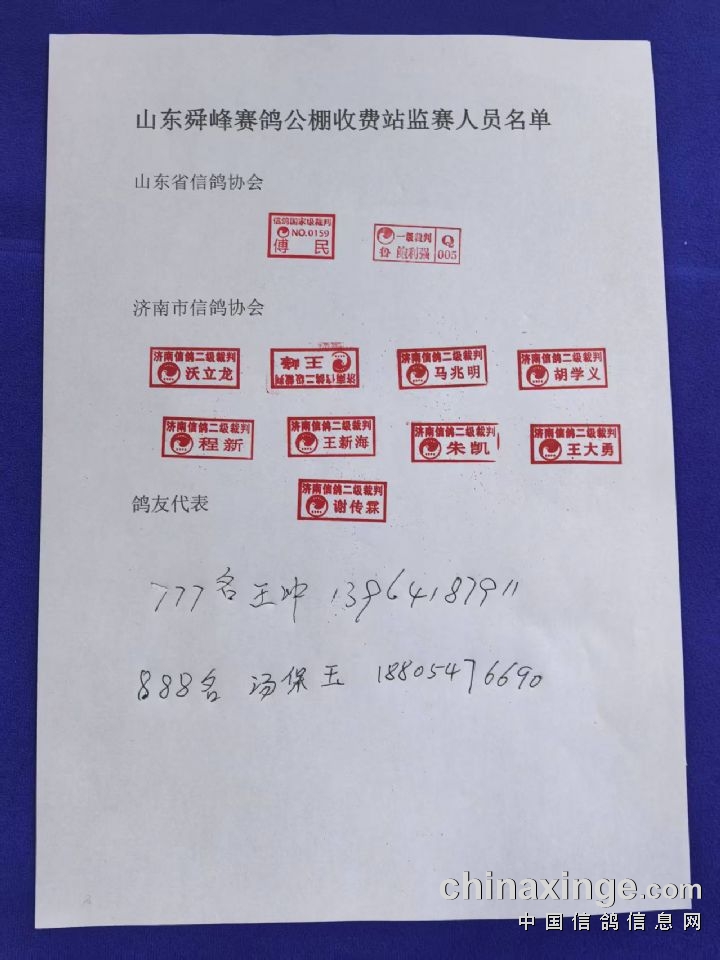 山东舜峰赛鸽公棚收费站监赛人员名单
山东省信鸽协会
信鸽国家级裁判
NO.0159
傅 民
一级裁判 Q
鲁 鲍利强 005
济南市信鸽协会
济南信鸽二级裁判
沃立龙
济南信鸽二级裁判
王峰
济南信鸽二级裁判
马兆明
济南信鸽二级裁判
胡学义
济南信鸽二级裁判
程新
济南信鸽二级裁判
王新海
济南信鸽二级裁判
朱凯
济南信鸽二级裁判
王大勇
鸽友代表
济南信鸽二级裁判
谢传霖
777名 王冲 13964187911
888名 汤保玉 18805476690
chinaxinge.com
中国信鸽信息网